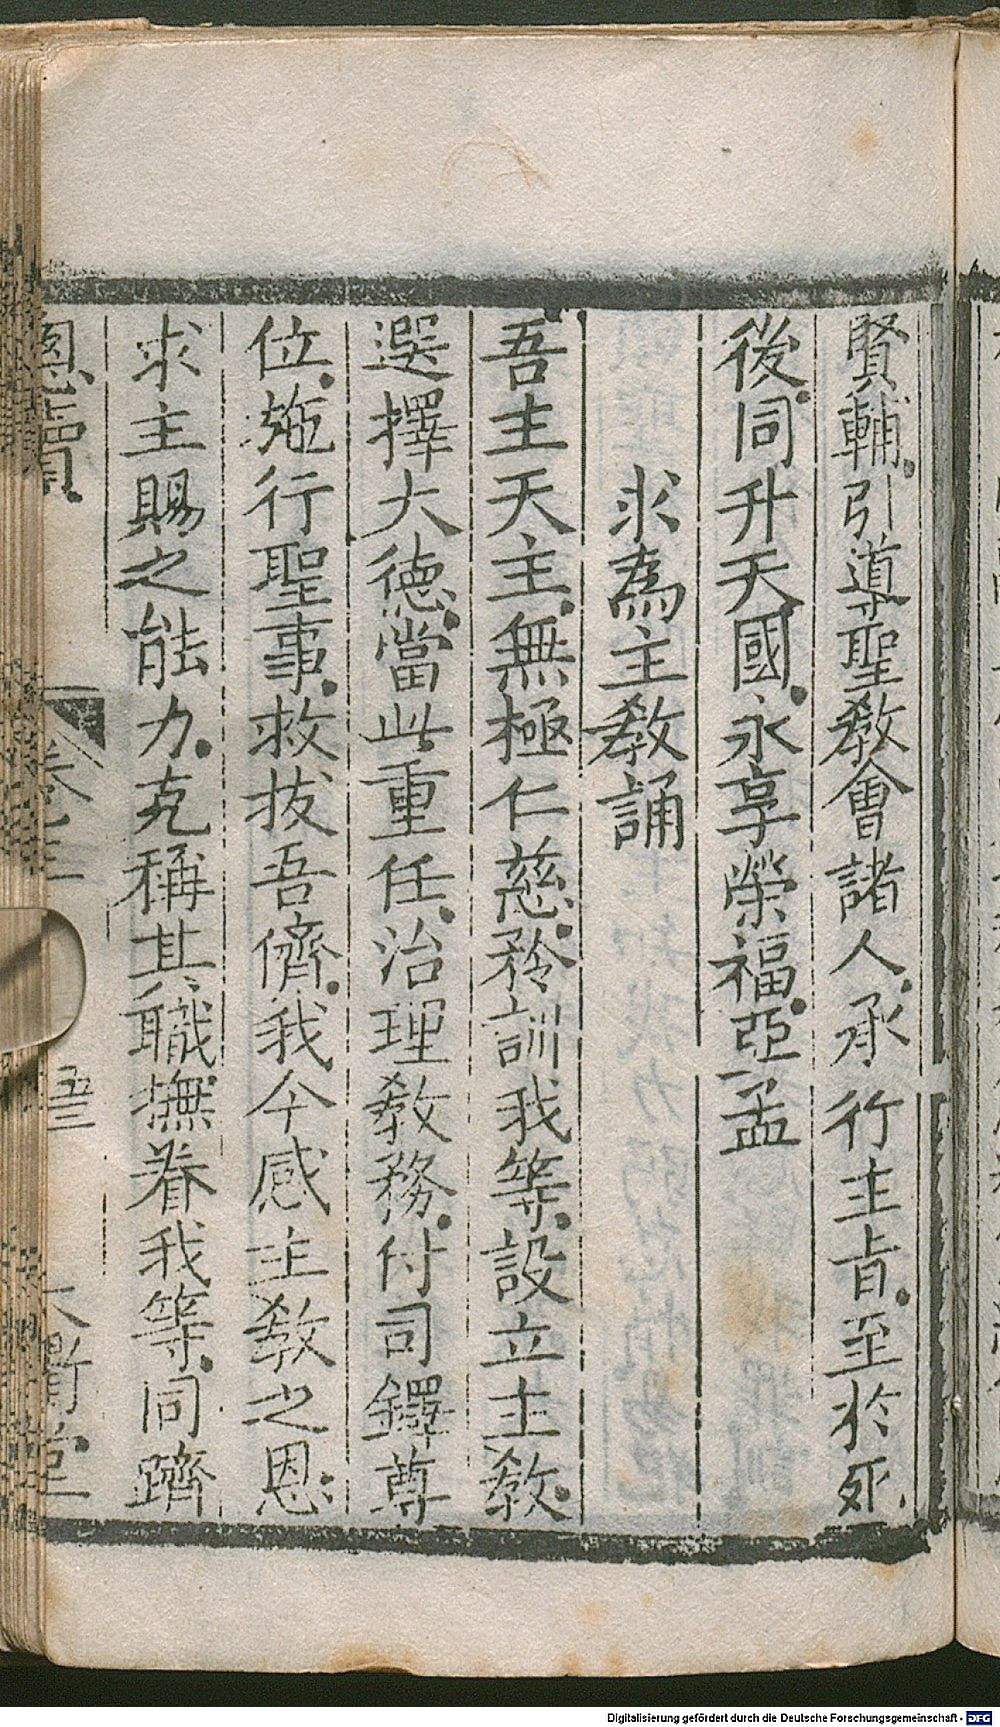 賢輔引導聖教會諸人承行主旨至於死
後同升天國永享榮福亞孟
求為主教誦
吾主天主無極仁慈矜訓我等設立主教
選擇大德當此重任治理教務付司鐸尊
位施行聖事救拔吾儕我今感主教之恩
求主賜之能力克稱其職撫眷我等同躋
卷之三
大衛堂
Digitalisierung gefördert durch die Deutsche Forschungsgemeinschaft - DFG